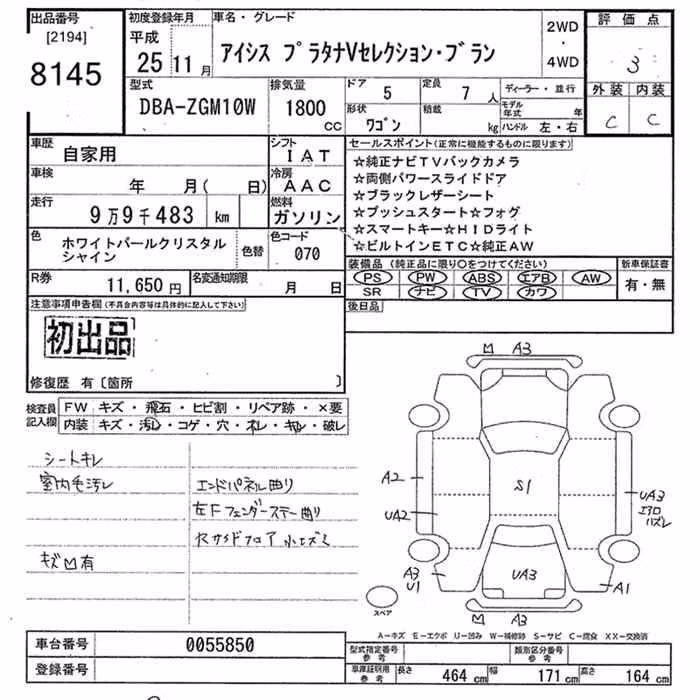 出品番号
[2194]
8145
初度登録年月
平成
25 11 月
車名・グレード
アイシス プラタナVセレクション・ブラン
2WD
・
4WD
評価点
3
外装 内装
C C
型式
DBA-ZGM10W
排気量
1800
CC
ドア 5
定員 7 人
形状 ワゴン
積載 kg
ディーラー・並行
モデル年式 年
ハンドル 左・右
車歴 自家用
シフト IAT
車検 年 月( 日)
冷房 AAC
走行 9万9千483 km
燃料 ガソリン
色 ホワイトパールクリスタル
シャイン
色替
色コード 070
R券 11,650 円
名変通知期限 月 日
セールスポイント(正常に機能するものに限ります)
☆純正ナビTVバックカメラ
☆両側パワースライドドア
☆ブラックレザーシート
☆プッシュスタート☆フォグ
☆スマートキー☆HIDライト
☆ビルトインETC☆純正AW
装備品(純正品に限り○をつけてください)
PS PW ABS エアB AW
SR ナビ TV カワ
新車保証書
有・無
後日品
注意事項申告欄(不具合内容等は具体的に記入して下さい)
初出品
修復歴 有〔箇所 〕
検査員記入欄
FW キズ・飛石・ヒビ割・リペア跡・×要
内装 キズ・汚レ・コゲ・穴・ネレ・キレ・破レ
シートキレ
室内毛汚レ
エンドパネル曲り
左Fフェンダーステー曲り
Rサイドフロア小エズミ
キズ凹有
凹 A3
A2
S1
UA3
エアロ
ハズレ
UA2
A3
U1
UA3
A1
凹 A3
スペア
A-キズ E-エクボ U-凹み W-補修跡 S-サビ C-腐食 XX-交換済
車台番号 0055850
登録番号
型式指定番号 参考
類別区分番号 参考
車庫証明用 参考
長さ 464 cm 幅 171 cm 高さ 164 cm